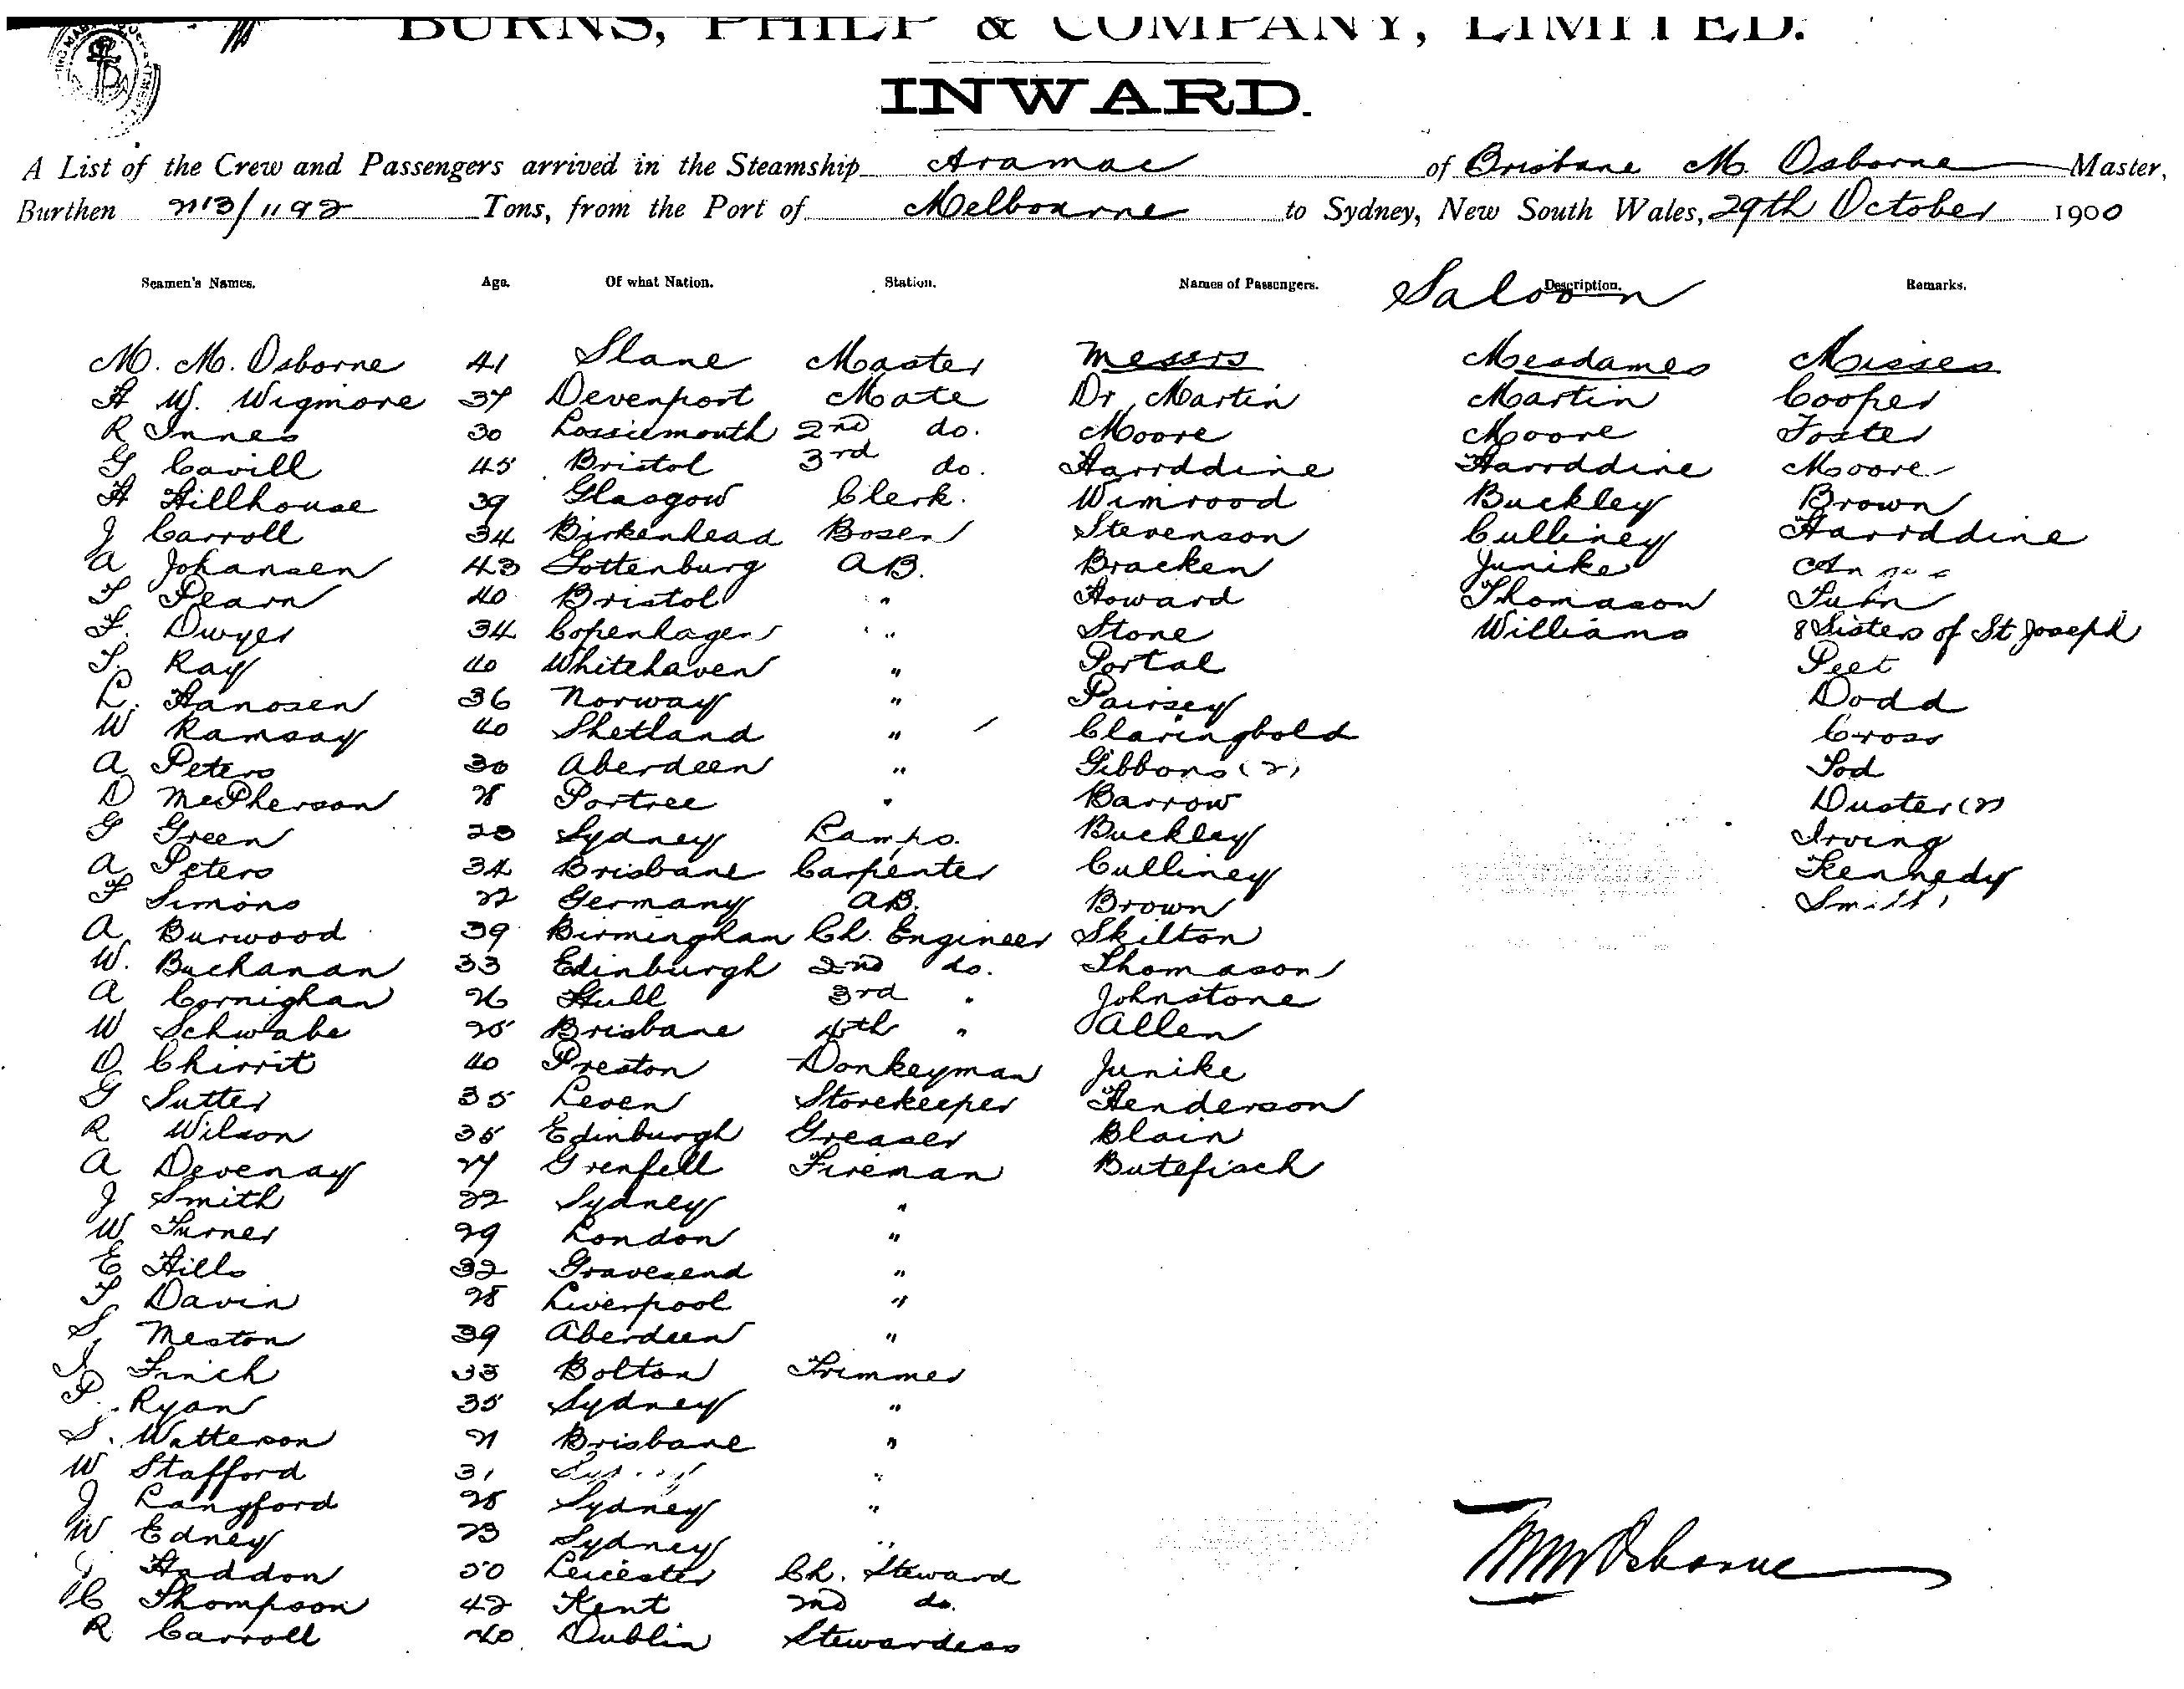 BURNS, PHILP & COMPANY, LIMITED.
INWARD.
A List of the Crew and Passengers arrived in the Steamship Aramac of Brisbane M. Osborne Master,
Burthen 2113/1192 Tons, from the Port of Melbourne to Sydney, New South Wales, 29th October 1900
Seamen's Names. Age. Of what Nation. Station. Names of Passengers. Description. Remarks.
Saloon
M. M. Osborne 41 Slane Master Messrs Mesdames Misses
H W. Wigmore 37 Devenport Mate Dr Martin Martin Cooper
R Innes 30 Lossiemouth 2nd do. Moore Moore Foster
G Cavill 45 Bristol 3rd do. Harrddine Harrddine Moore
H Hillhouse 39 Glasgow Clerk. Wimrood Buckley Brown
J Carroll 34 Birkenhead Bosen Stevenson Culliney Harrddine
A Johansen 43 Gottenburg AB. Bracken Junike
T Pearn 40 Bristol " Howard Thomason
F. Dwyer 34 Copenhagen " Stone Williams 8 Sisters of St Joseph
T. Ray 40 Whitehaven " Portal Peet
L. Hanosen 36 Norway " Pairsey Dodd
W Ramsay 40 Shetland " Claringbold Cross
A Peters 30 Aberdeen " Gibbons (2) Tod
D McPherson 28 Portree " Barrow Duster (2)
G Green 23 Sydney Lamps. Buckley Irving
A Peters 34 Brisbane Carpenter Culliney Kennedy
F Simons 22 Germany AB. Brown Smith
A Burwood 39 Birmingham Ch. Engineer Skilton
W. Buchanan 33 Edinburgh 2nd do. Thomason
A Cornighan 26 Hull 3rd " Johnstone
W Schwabe 25 Brisbane 4th " Allen
D Chirrit 40 Preston Donkeyman Junike
G Sutter 35 Leven Storekeeper Henderson
R Wilson 35 Edinburgh Greaser Blain
A Devenay 27 Grenfell Fireman Butefisch
J Smith 22 Sydney "
W Turner 29 London "
E Hills 32 Gravesend "
T Davin 28 Liverpool "
S, Meston 39 Aberdeen "
J Finch 33 Bolton Trimmer
P. Ryan 35 Sydney "
S. Watterson 21 Brisbane "
W Stafford 31 "
J Langford 25 Sydney "
W Edney 23 Sydney "
J Haddon 50 Leicester Ch. Steward
C Thompson 42 Kent 2nd do.
R Carroll 40 Dublin Stewardess
MM Osborne